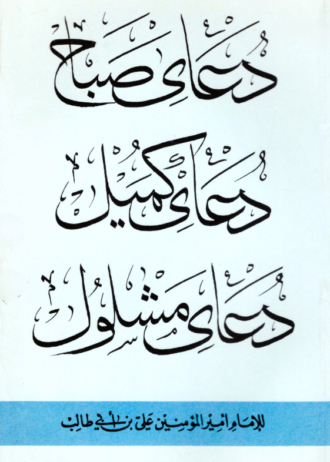 دُعَایِ صَبَاح
دُعَایِ کُمَیْل
دُعَایِ مَشْلُول
للإمام امیر المؤمنین علی بن أبی طالب